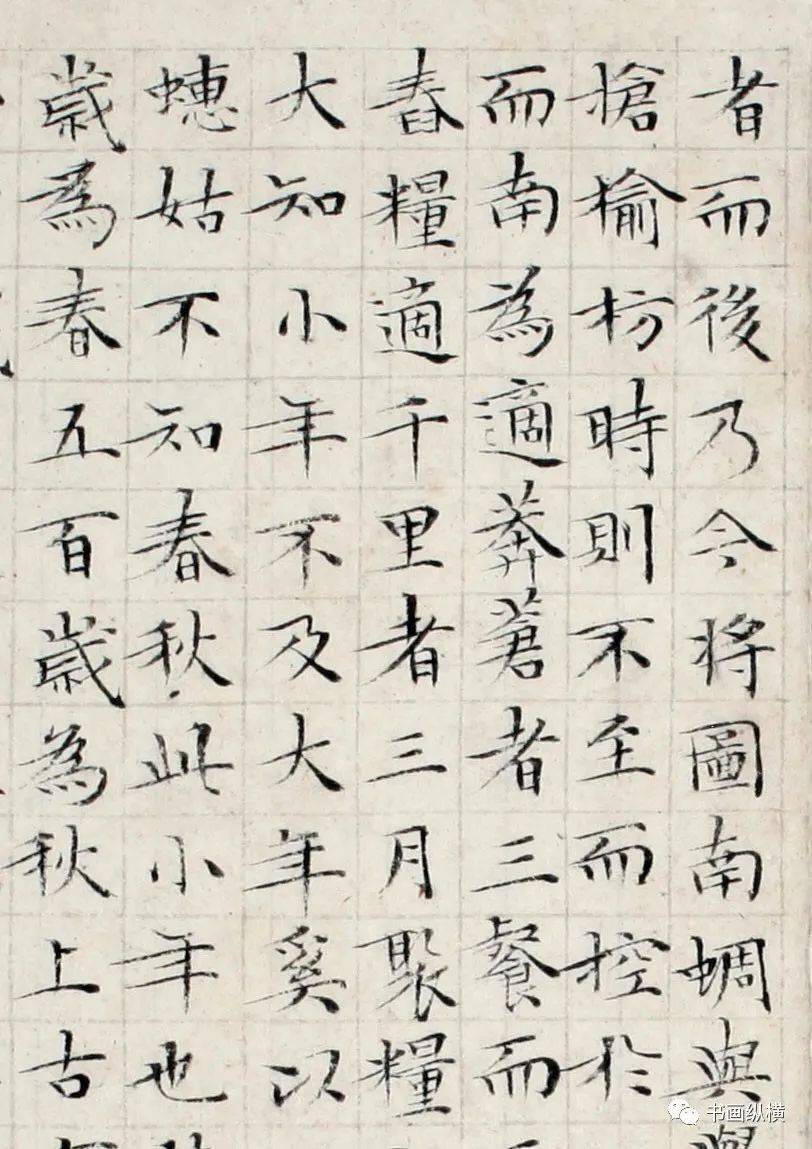 者而後乃今将圖南蜩與
搶榆枋時則不至而控於
而南為適莽蒼者三餐而
舂糧適千里者三月聚糧
大知小年不及大年奚以
蟪姑不知春秋此小年也
歲為春五百歲為秋上古
书画纵横